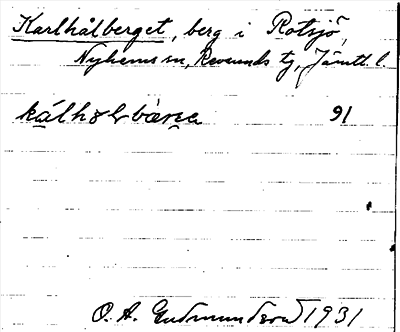 Karlhålberget, berg i Rotsjö,
Nyhems sn, Revsunds tg, Jämtl. l.
kálhɔlbàrea 91
O. A. Gudmundsson 1931